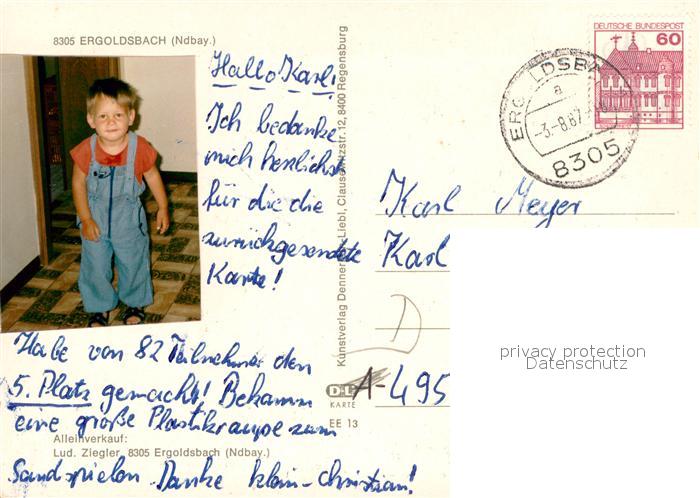 8305 ERGOLDSBACH (Ndbay.)
Hallo Karl!
Ich bedanke
mich herzlichst
für die die
zurückgesendete
Karte!
Habe von 82 Teilnehmer den
5. Platz gemacht! Bekamm
eine große Plastikraupe zum
Sandspielen. Danke klein-Christian!
Alleinverkauf:
Lud. Ziegler, 8305 Ergoldsbach (Ndbay.)
Kunstverlag Liebl, Clausewitzstr. 12, 8400 Regensburg
KARTE
EE 13
DEUTSCHE BUNDESPOST
60
ERG LDSBA
a
-3.-8.87
8305
Karl Meyer
Karl
D
A-495
privacy protection
Datenschutz